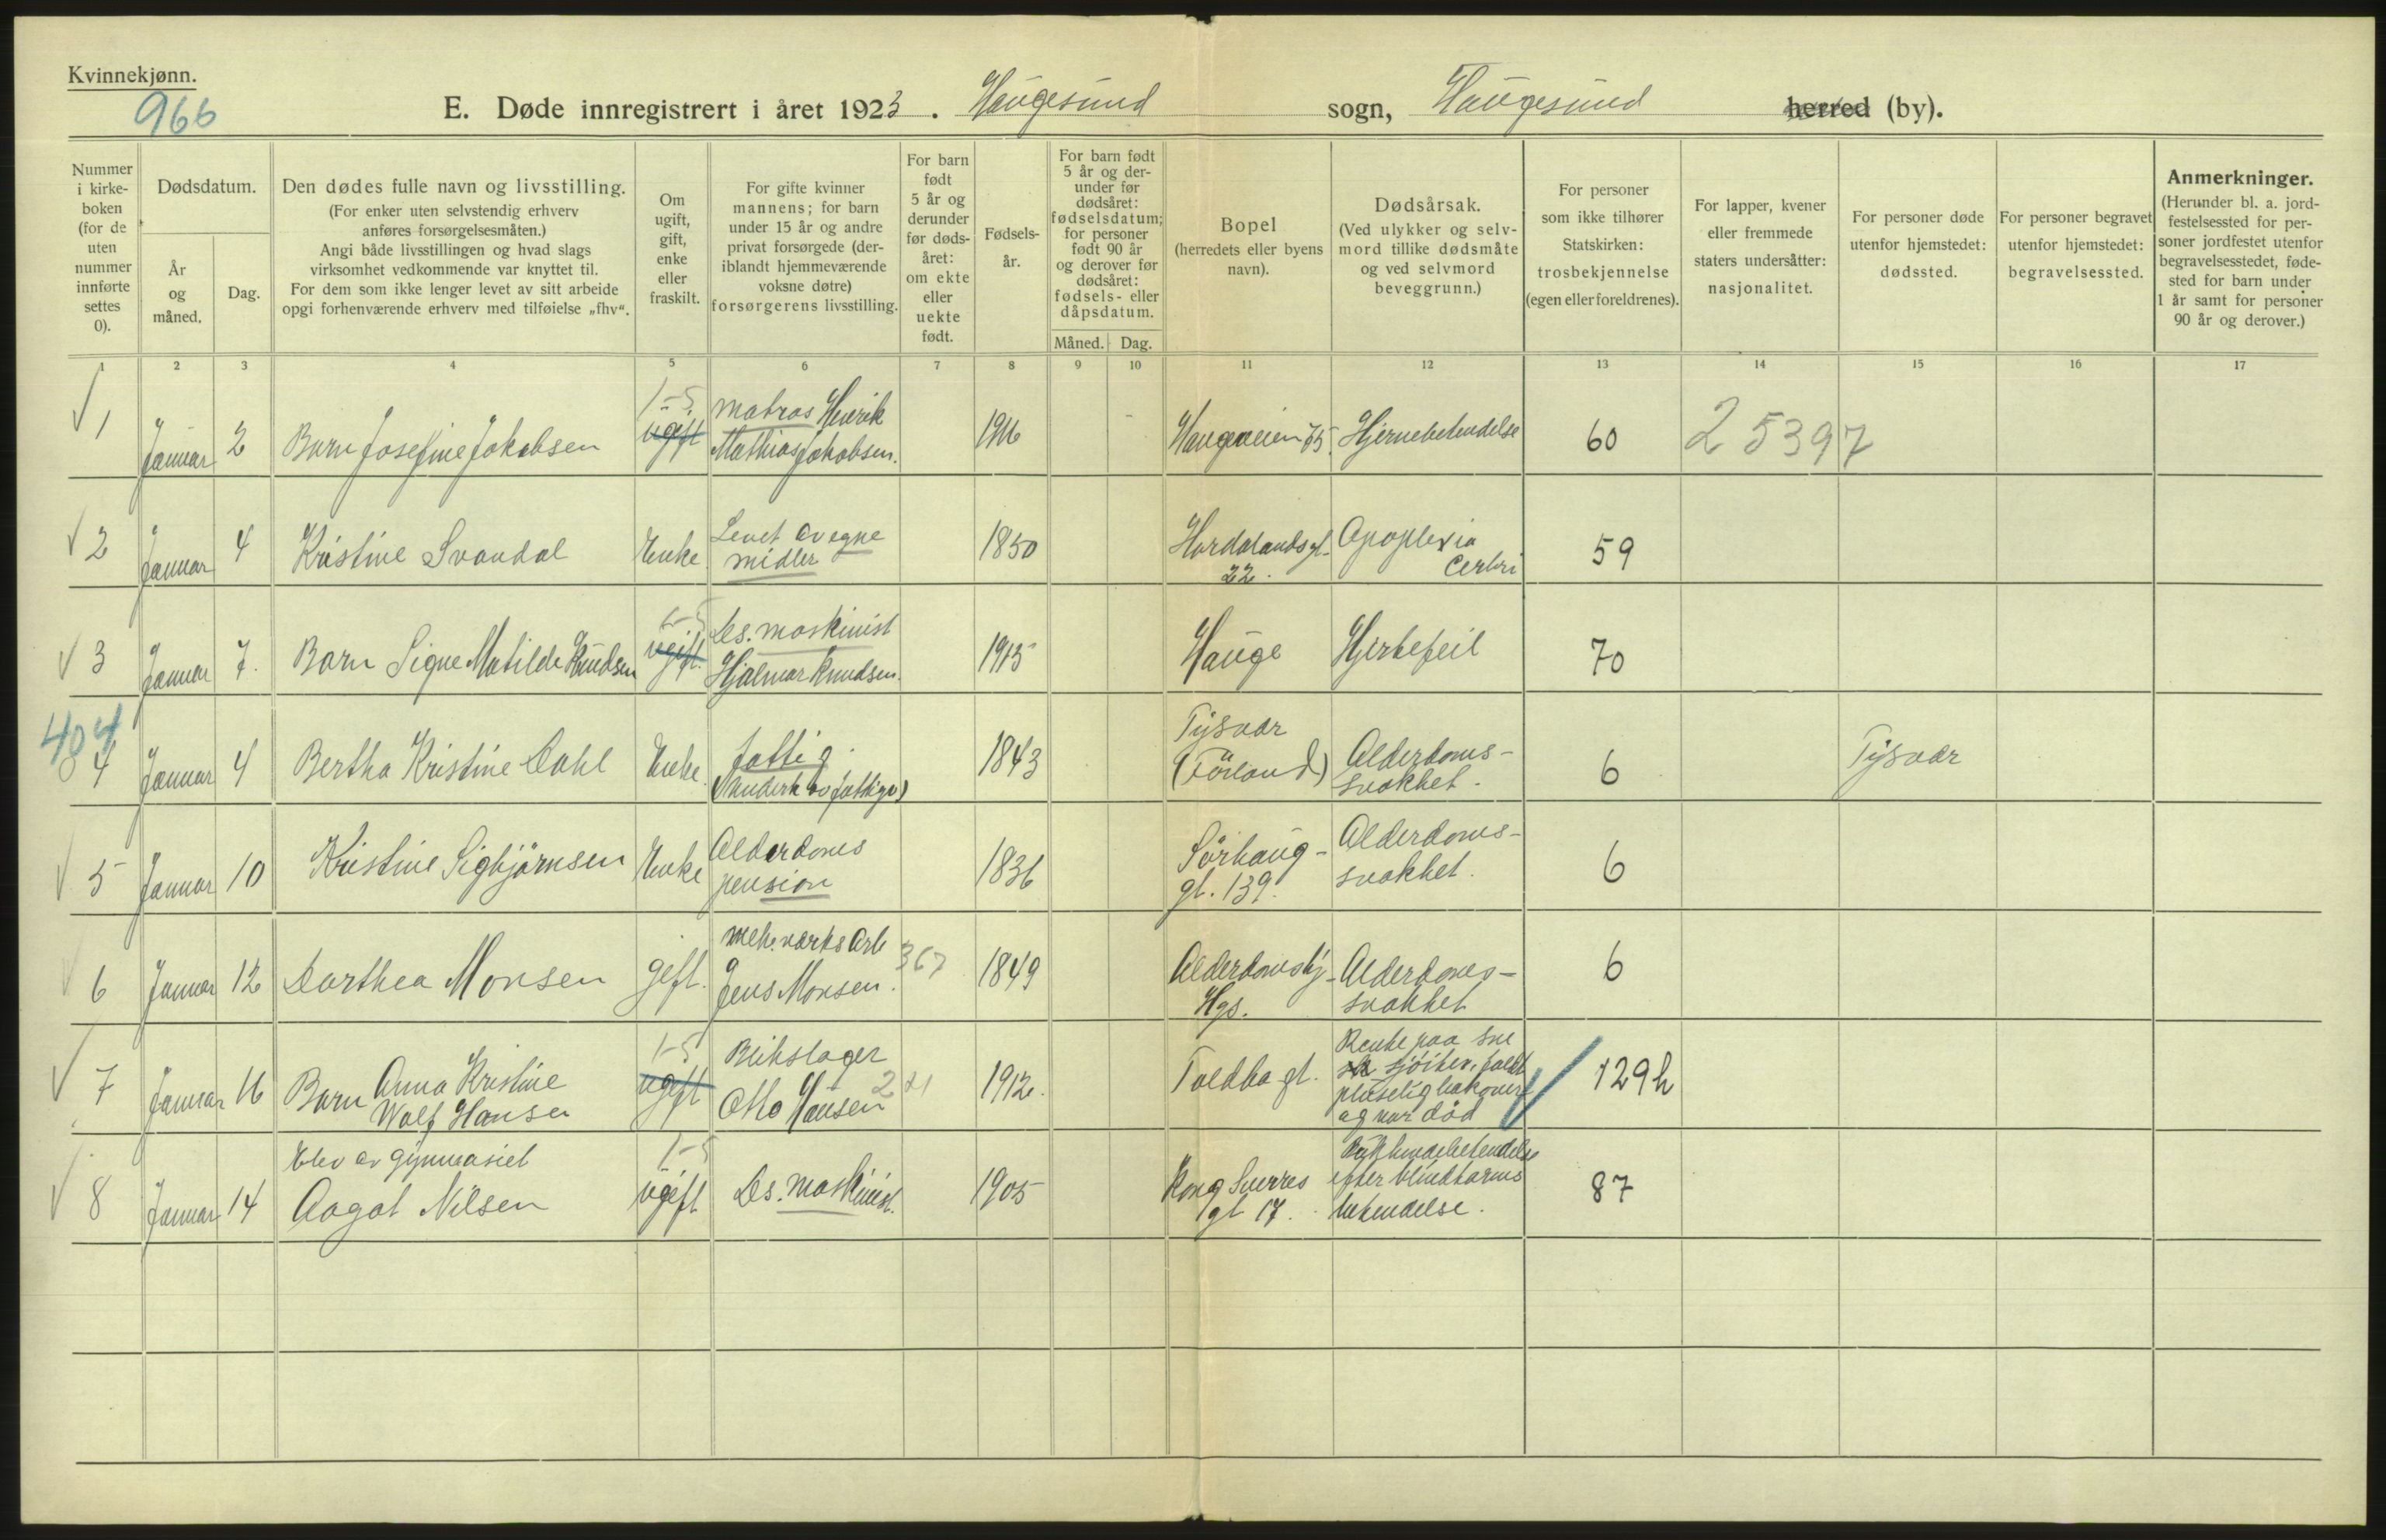 Kvinnekjønn.
966
E. Døde innregistrert i året 1923. Haugesund sogn, Haugesund herred (by).
Nummer i kirke-boken (for de uten nummer innførte settes 0).
Dødsdatum.
År og måned.
Dag.
Den dødes fulle navn og livsstilling.
(For enker uten selvstendig erhverv
anføres forsørgelsesmåten.)
Angi både livsstillingen og hvad slags
virksomhet vedkommende var knyttet til.
For dem som ikke lenger levet av sitt arbeide
opgi forhenværende erhverv med tilføielse „fhv“.
Om
ugift,
gift,
enke
eller
fraskilt.
For gifte kvinner
mannens; for barn
under 15 år og andre
privat forsørgede (der-
iblandt hjemmeværende
voksne døtre)
forsørgerens livsstilling.
For barn
født
5 år og
derunder
før døds-
året:
om ekte
eller
uekte
født.
Fødsels-
år.
For barn født
5 år og der-
under før
dødsåret:
fødselsdatum;
for personer
født 90 år
og derover før
dødsåret:
fødsels- eller
dåpsdatum.
Måned. Dag.
Bopel
(herredets eller byens
navn).
Dødsårsak.
(Ved ulykker og selv-
mord tillike dødsmåte
og ved selvmord
beveggrunn.)
For personer
som ikke tilhører
Statskirken:
trosbekjennelse
(egen eller foreldrenes).
For lapper, kvener
eller fremmede
staters undersåtter:
nasjonalitet.
For personer døde
utenfor hjemstedet:
dødssted.
For personer begravet
utenfor hjemstedet:
begravelsessted.
Anmerkninger.
(Herunder bl. a. jord-
festelsessted for per-
soner jordfestet utenfor
begravelsesstedet, føde-
sted for barn under
1 år samt for personer
90 år og derover.)
1 2 3 4 5 6 7 8 9 10 11 12 13 14 15 16 17
1 Januar 2 Barn Josefine Jakobsen
1-5
ugift
matros Henrik
Mathias Jakobsen.
1916 Haugeveien 75. Hjernebetendelse 60 25397
2 Januar 4 Kristine Svandal Enke
Levet av egne
midler
1850
Hordalandsgt.
22.
Apoplexia
Cerbri
59
3 Januar 7. Barn Signe Matilde Knudsen
1-5
ugift.
Ds. maskinist
Hjalmar Knudsen.
1915 Hauge Hjertefeil 70
404
4 Januar 4 Bertha Kristine Dahl Enke.
fattig.
1843
Tysvær
(Førland)
Alderdoms-
svakhet.
6 Tysvær
5 Januar 10 Kristine Sigbjørnsen Enke
Alderdoms
pension
1836
Sørhaug-
gt. 139.
Alderdoms-
svakhet.
6
6 Januar 12 Dorthea Monsen gift.
mek. værks Arb
Jens Monsen.
367 1849
Alderdomshj.
Hgs.
Alderdoms-
svakhet
6
7 Januar 16 Barn Anna Kristine
Wolf Hansen
1-5
ugift
Blikslager
Otto Hansen
221 1912. Toldbo gt.
Rente paa sne
plutselig bakover
og var død
129h
8 Januar 14
Elev av gymnasiet
Aagot Nilsen
1-5
ugift Ds. maskinist. 1905
Kong Sverres
gt 17.
Bukhindebetendelse
efter blindtarms
betendelse.
87